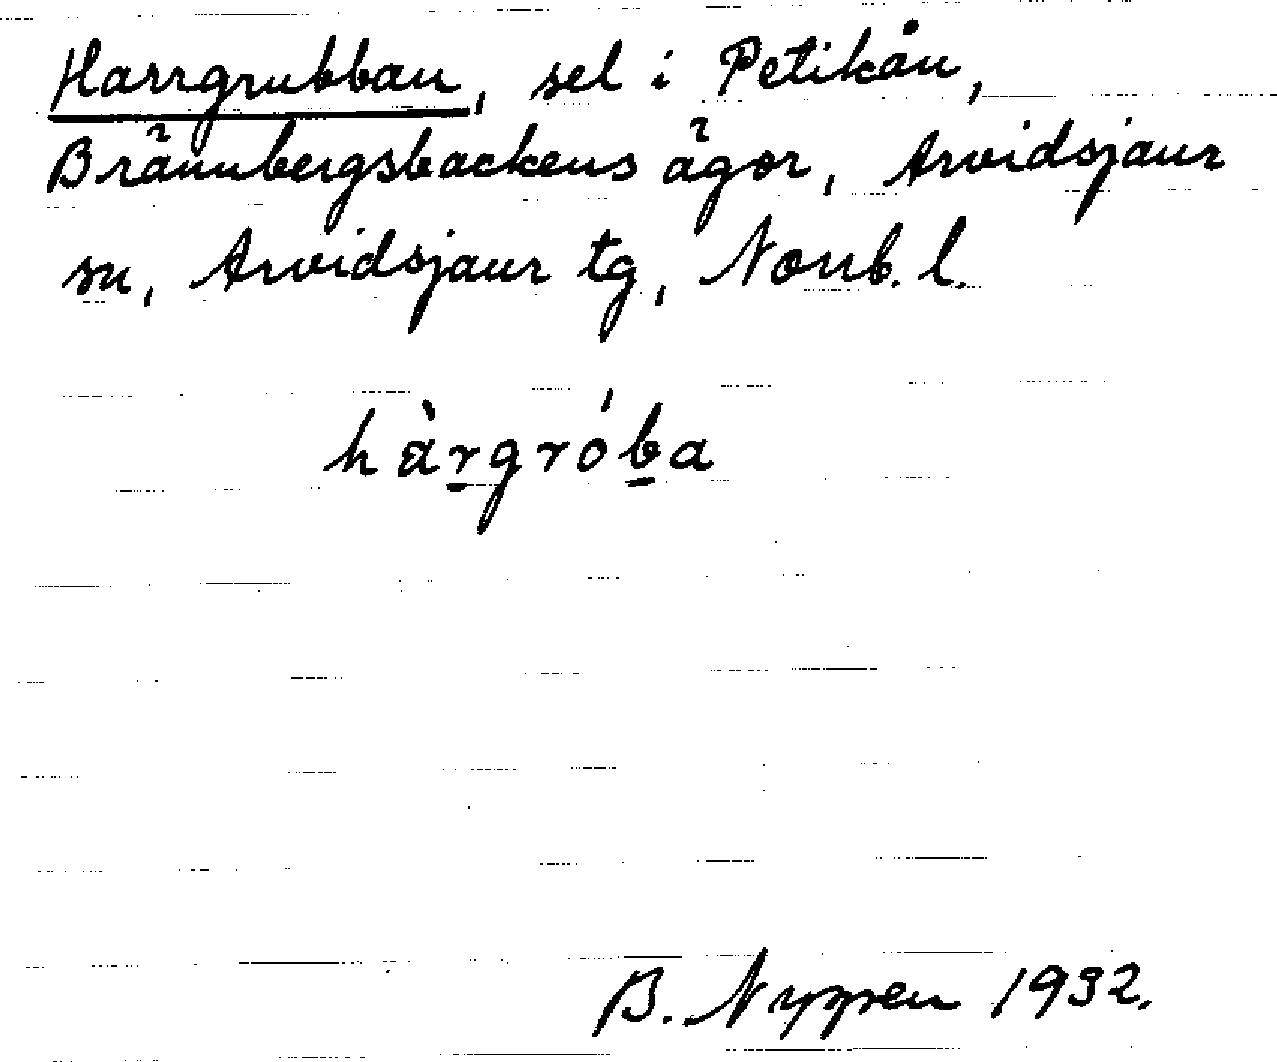 Harrgrubban, sel i Petikån,
Brännbergsbackens ägor, Arvidsjaur
sn, Arvidsjaur tg, Norrb. l.
hàrgróba
B. Nyman 1932.